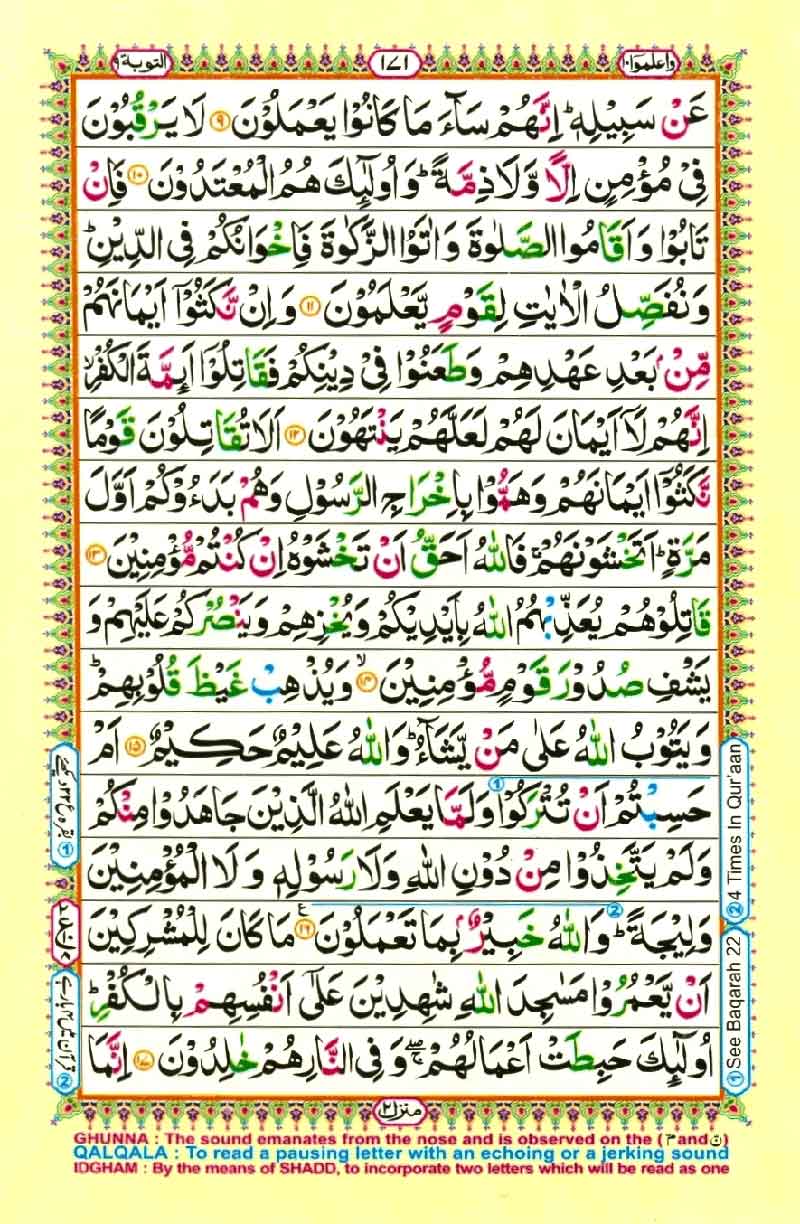 التوبة ٩
١٧١
واعلموا ١٠
عَنْ سَبِيْلِهٖ ؕ اِنَّهُمْ سَآءَ مَا كَانُوْا يَعْمَلُوْنَ ۝٩ لَا يَرْقُبُوْنَ
فِيْ مُؤْمِنٍ اِلًّا وَّلَا ذِمَّةً ؕ وَاُولٰٓئِكَ هُمُ الْمُعْتَدُوْنَ ۝١٠ فَاِنْ
تَابُوْا وَاَقَامُوا الصَّلٰوةَ وَاٰتَوُا الزَّكٰوةَ فَاِخْوَانُكُمْ فِي الدِّيْنِ ؕ
وَنُفَصِّلُ الْاٰيٰتِ لِقَوْمٍ يَّعْلَمُوْنَ ۝١١ وَاِنْ نَّكَثُوْۤا اَيْمَانَهُمْ
مِّنْۢ بَعْدِ عَهْدِهِمْ وَطَعَنُوْا فِيْ دِيْنِكُمْ فَقَاتِلُوْۤا اَئِمَّةَ الْكُفْرِ ۙ
اِنَّهُمْ لَاۤ اَيْمَانَ لَهُمْ لَعَلَّهُمْ يَنْتَهُوْنَ ۝١٢ اَلَا تُقَاتِلُوْنَ قَوْمًا
نَّكَثُوْۤا اَيْمَانَهُمْ وَهَمُّوْا بِاِخْرَاجِ الرَّسُوْلِ وَهُمْ بَدَءُوْكُمْ اَوَّلَ
مَرَّةٍ ؕ اَتَخْشَوْنَهُمْ ۚ فَاللّٰهُ اَحَقُّ اَنْ تَخْشَوْهُ اِنْ كُنْتُمْ مُّؤْمِنِيْنَ ۝١٣
قَاتِلُوْهُمْ يُعَذِّبْهُمُ اللّٰهُ بِاَيْدِيْكُمْ وَيُخْزِهِمْ وَيَنْصُرْكُمْ عَلَيْهِمْ وَ
يَشْفِ صُدُوْرَ قَوْمٍ مُّؤْمِنِيْنَ ۝١٤ ۙ وَيُذْهِبْ غَيْظَ قُلُوْبِهِمْ ؕ
وَيَتُوْبُ اللّٰهُ عَلٰى مَنْ يَّشَآءُ ؕ وَاللّٰهُ عَلِيْمٌ حَكِيْمٌ ۝١٥ اَمْ
حَسِبْتُمْ اَنْ تُتْرَكُوْا وَلَمَّا يَعْلَمِ اللّٰهُ الَّذِيْنَ جَاهَدُوْا مِنْكُمْ
وَلَمْ يَتَّخِذُوْا مِنْ دُوْنِ اللّٰهِ وَلَا رَسُوْلِهٖ وَلَا الْمُؤْمِنِيْنَ
وَلِيْجَةً ؕ وَاللّٰهُ خَبِيْرٌۢ بِمَا تَعْمَلُوْنَ ۝١٦ ع مَا كَانَ لِلْمُشْرِكِيْنَ
اَنْ يَّعْمُرُوْا مَسٰجِدَ اللّٰهِ شٰهِدِيْنَ عَلٰٓى اَنْفُسِهِمْ بِالْكُفْرِ ؕ
اُولٰٓئِكَ حَبِطَتْ اَعْمَالُهُمْ ۖۚ وَفِي النَّارِ هُمْ خٰلِدُوْنَ ۝١٧ اِنَّمَا
① See Baqarah 22 ② 4 Times In Qur'aan
منزل ٢
GHUNNA : The sound emanates from the nose and is observed on the (م and ن)
QALQALA : To read a pausing letter with an echoing or a jerking sound
IDGHAM : By the means of SHADD, to incorporate two letters which will be read as one